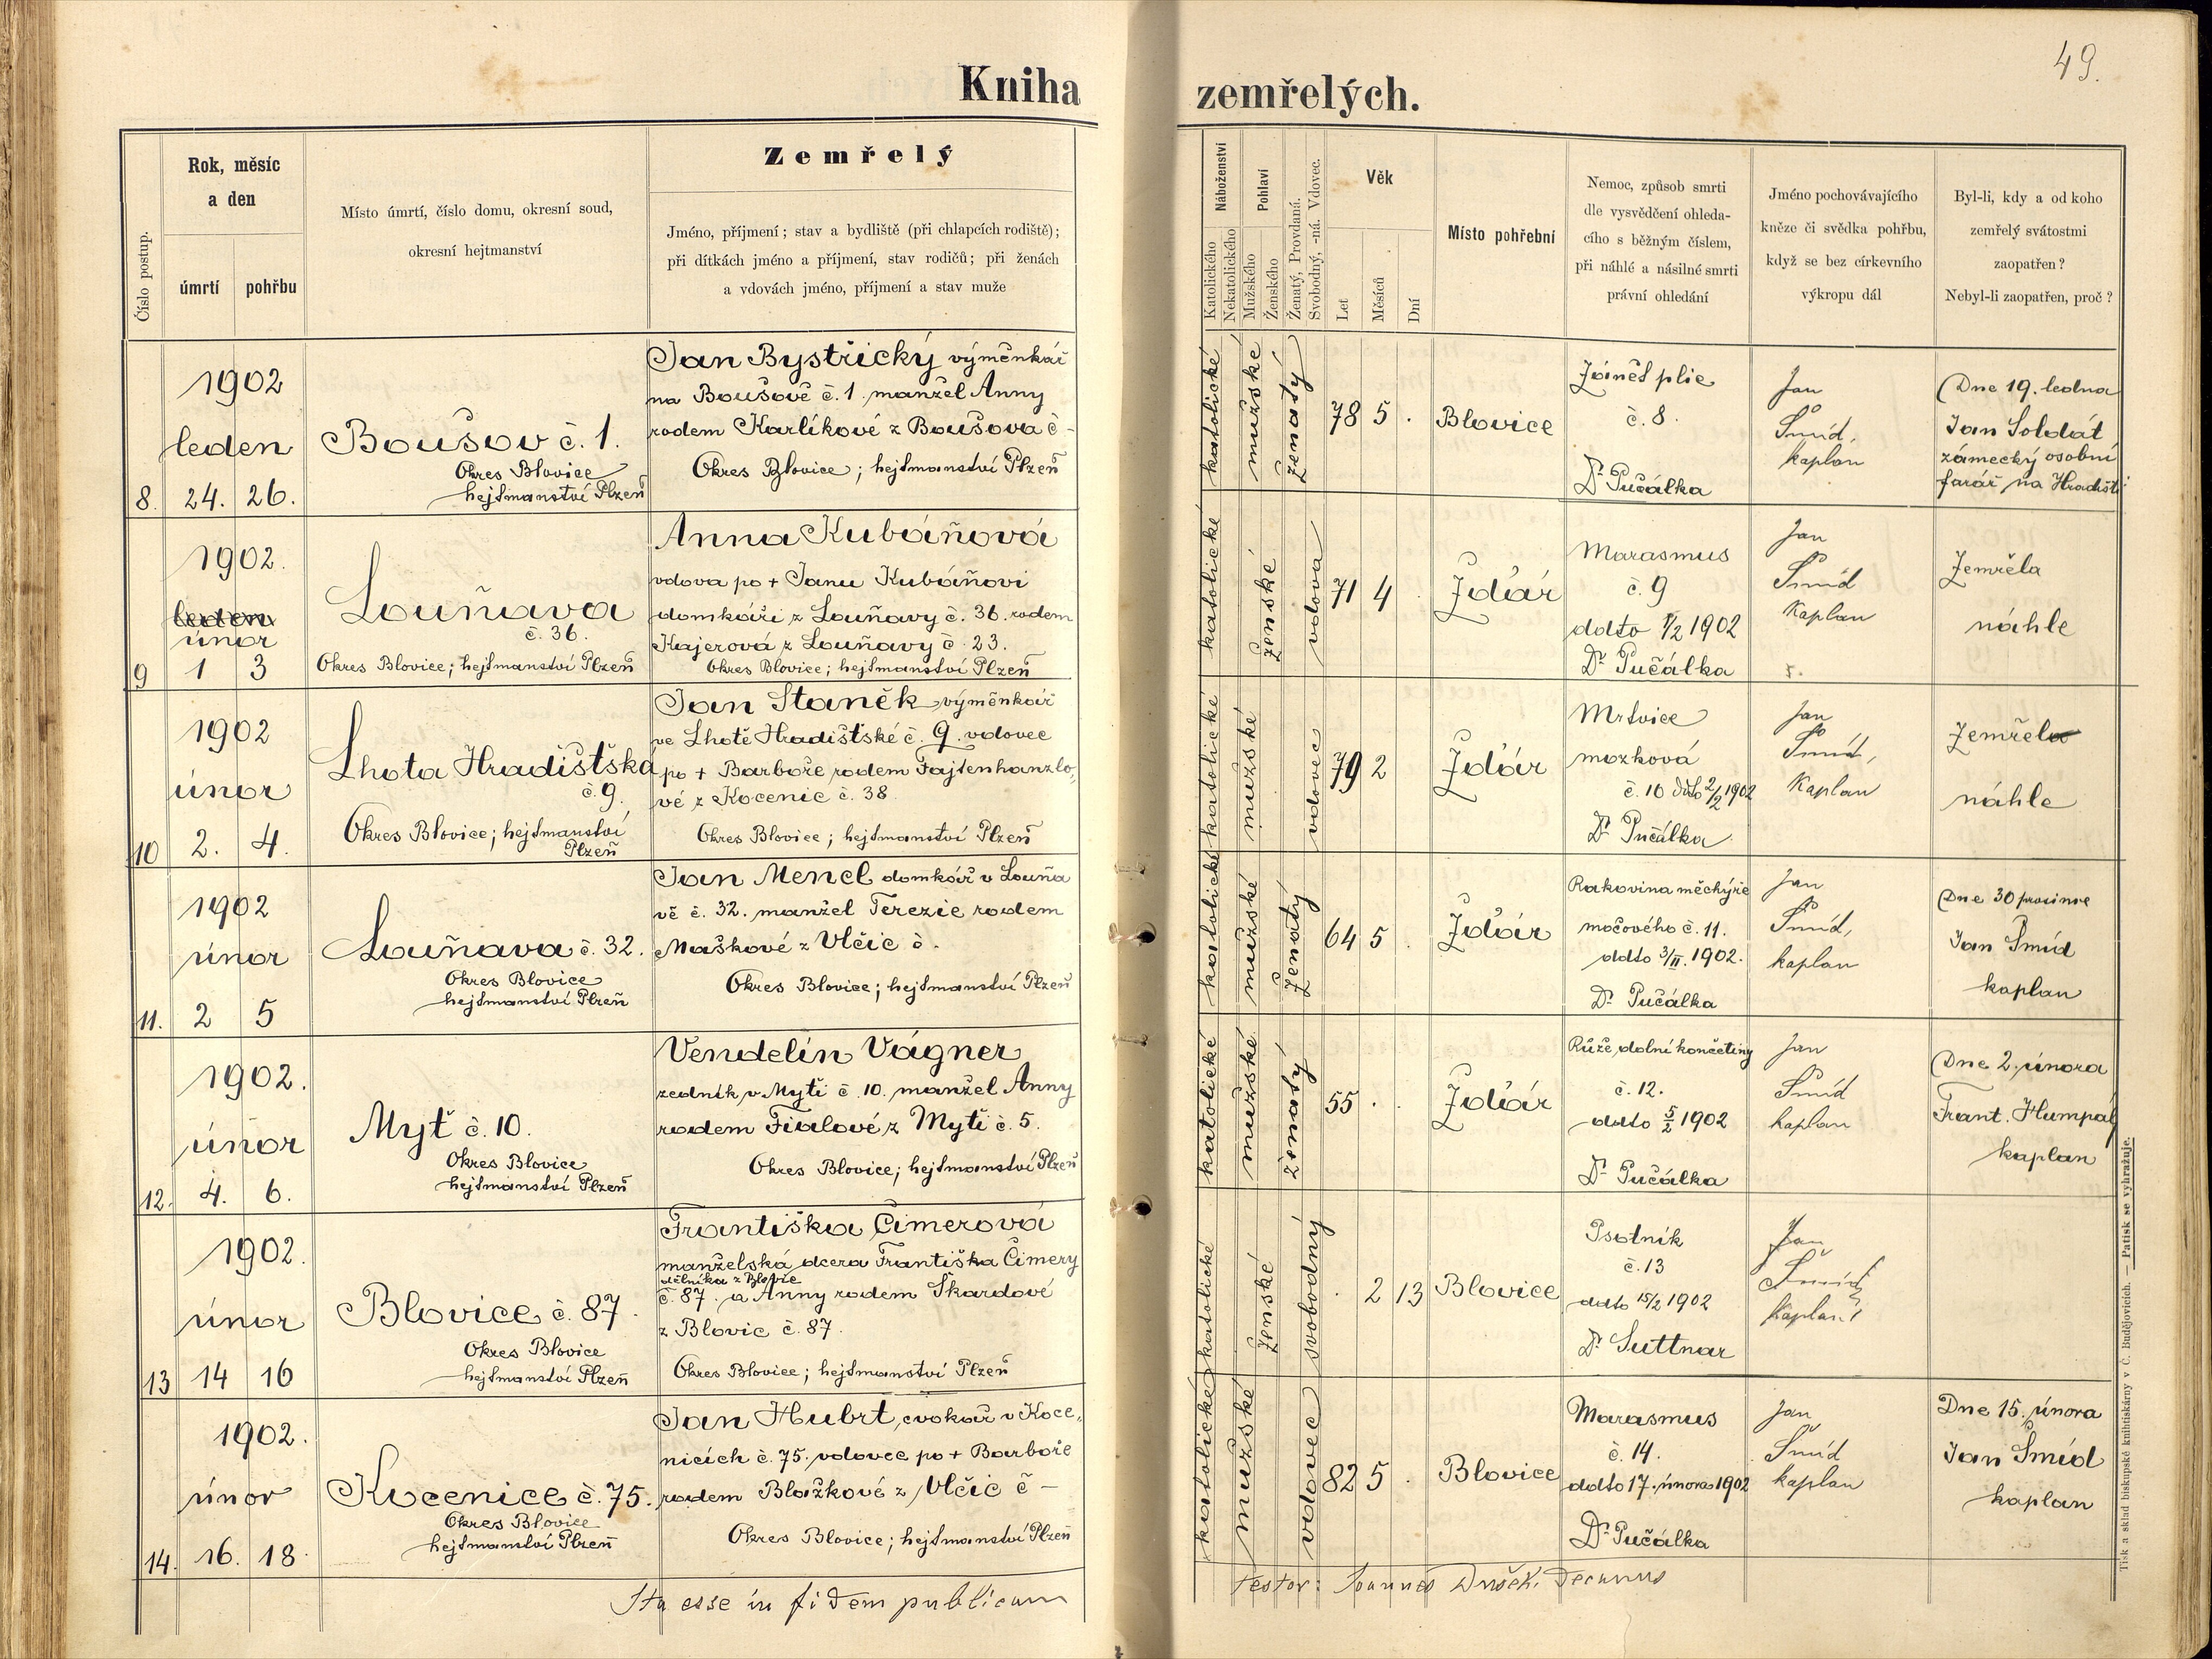 49.
Kniha zemřelých.
Číslo postup.
Rok, měsíc
a den
úmrtí
pohřbu
Místo úmrtí, číslo domu, okresní soud,
okresní hejtmanství
Zemřelý
Jméno, příjmení; stav a bydliště (při chlapcích rodiště);
při dítkách jméno a příjmení, stav rodičů; při ženách
a vdovách jméno, příjmení a stav muže
Náboženství
Katolického
Nekatolického
Pohlaví
Mužského
Ženského
Ženatý, Provdaná.
Svobodný, -ná. Vdovec.
Věk
Let
Měsíců
Dní
Místo pohřební
Nemoc, způsob smrti
dle vysvědčení ohleda-
cího s běžným číslem,
při náhlé a násilné smrti
právní ohledání
Jméno pochovávajícího
kněze či svědka pohřbu,
když se bez církevního
výkropu dál
Byl-li, kdy a od koho
zemřelý svátostmi
zaopatřen?
Nebyl-li zaopatřen, proč?
8.
1902
leden
24. 26.
Boušov č. 1.
Okres Blovice
hejtmanství Plzeň
Jan Bystřický výměnkář
na Boušově č. 1. manžel Anny
rodem Karlíkové z Boušova č -
Okres Blovice; hejtmanství Plzeň
katolické
mužské
ženatý
78 5 .
Blovice
Zánět plic
č. 8.
Dr Pučálka
Jan
Šmíd,
kaplan
Dne 19. ledna
Jan Soldát
zámecký osobní
farář na Hradišti
9
1902.
leden
únor
1 3
Louňava
č. 36.
Okres Blovice; hejtmanství Plzeň
Anna Kubáňová
vdova po + Janu Kubáňovi
domkáři z Louňavy č. 36. rodem
Kajerová z Louňavy č. 23.
Okres Blovice; hejtmanství Plzeň
katolické
ženské
vdova
71 4
Ždár
Marasmus
č. 9
ddto 1/2 1902
Dr Pučálka
Jan
Šmíd
Kaplan
Zemřela
náhle
10
1902
únor
2. 4.
Lhota Hradištská
č. 9.
Okres Blovice; hejtmanství
Plzeň
Jan Staněk výměnkář
ve Lhotě Hradištské č. 9. vdovec
po + Barboře rodem Fajtenhanzlo„
vé z Kocenic č. 38.
Okres Blovice; hejtmanství Plzeň
katolické
mužské
vdovec
79 2
Ždár
Mrtvice
mozková
č. 10 ddto 2/2 1902
Dr Pučálka
Jan
Šmíd,
Kaplan
Zemřel
náhle
11.
1902
únor
2 5
Louňava č. 32.
Okres Blovice
hejtmanství Plzeň
Jan Mencl domkář v Louňa
vě č. 32. manžel Terezie rodem
Maškové z Vlčic č.
Okres Blovice; hejtmanství Plzeň
katolické
mužské
ženatý
64 5
Ždár
Rakovina měchýře
močového č. 11.
ddto 3/II. 1902.
Dr Pučálka
Jan
Šmíd,
kaplan
Dne 30 prosince
Jan Šmíd
kaplan
12.
1902.
únor
4. 6.
Myť č. 10.
Okres Blovice
hejtmanství Plzeň
Vendelín Vágner
zedník v Myti č. 10. manžel Anny
rodem Fialové z Myti č. 5.
Okres Blovice; hejtmanství Plzeň
katolické
mužské
ženatý
55 . .
Ždár
Růže dolní končetiny
č. 12.
ddto 5/2 1902
Dr Pučálka
Jan
Šmíd
kaplan
Dne 2. února
Frant. Humpál
kaplan
13
1902.
únor
14 16
Blovice č. 87.
Okres Blovice
hejtmanství Plzeň
Františka Čimerová
manželská dcera Františka Čimery
dělníka z Blovic
č. 87. a Anny rodem Škardové
z Blovic č. 87.
Okres Blovice; hejtmanství Plzeň
katolické
ženské
svobodný
. 2 13
Blovice
Psotník
č. 13
ddto 15/2 1902
Dr Suttnar
Jan
Šmíd
kaplan
14.
1902.
únor
16. 18.
Kocenice č. 75.
Okres Blovice
hejtmanství Plzeň
Jan Hubrt, cvokář v Koce„
nicích č. 75. vdovec po + Barboře
rodem Blažkové z Vlčic č -
Okres Blovice; hejtmanství Plzeň
katolické
mužské
vdovec
82 5 .
Blovice
Marasmus
č. 14.
ddto 17. února 1902
Dr Pučálka
Jan
Šmíd
kaplan
Dne 15. února
Jan Šmíd
kaplan
Ita esse in fidem publicam testor: Joannes Dušek, Decanus
Tisk a sklad biskupské knihtiskárny v Č. Budějovicích. — Patisk se vyhražuje.